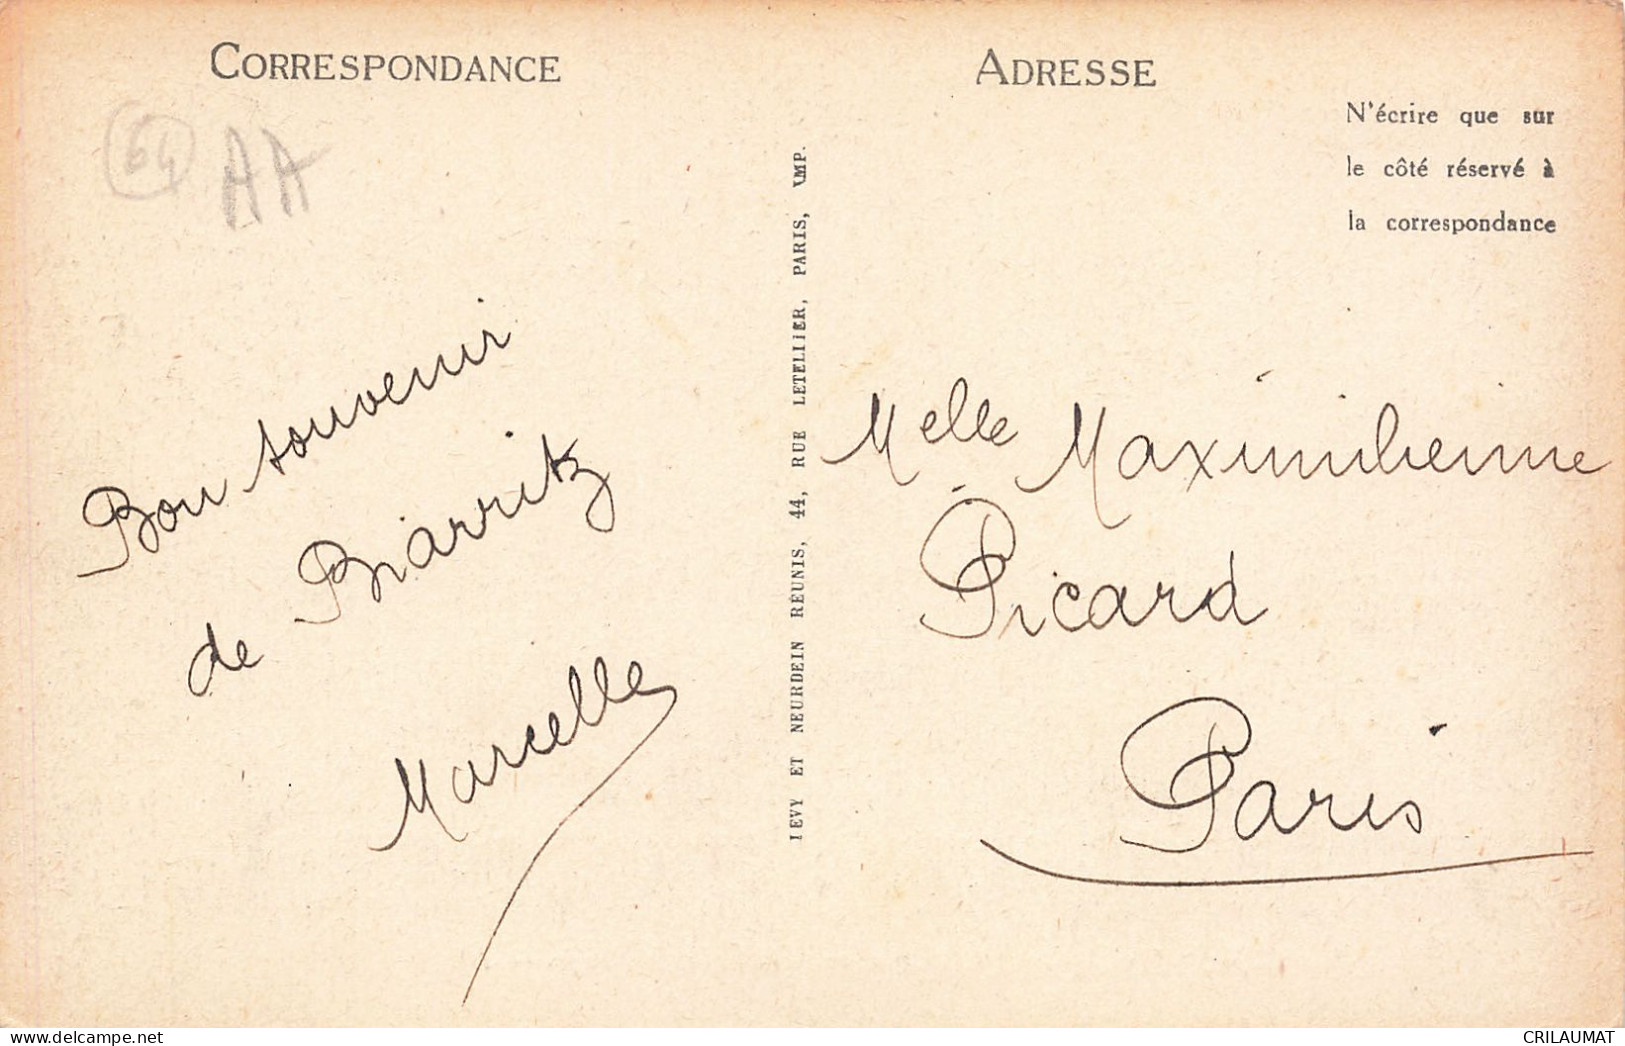 CORRESPONDANCE
64
AA
Bon souvenir
de Biarritz
Marcelle
LEVY ET NEURDEIN RÉUNIS, 44, RUE LETELLIER, PARIS, IMP.
ADRESSE
N'écrire que sur
le côté réservé à
la correspondance
Melle Maximilienne
Picard
Paris
www.delcampe.net
CRILAUMAT